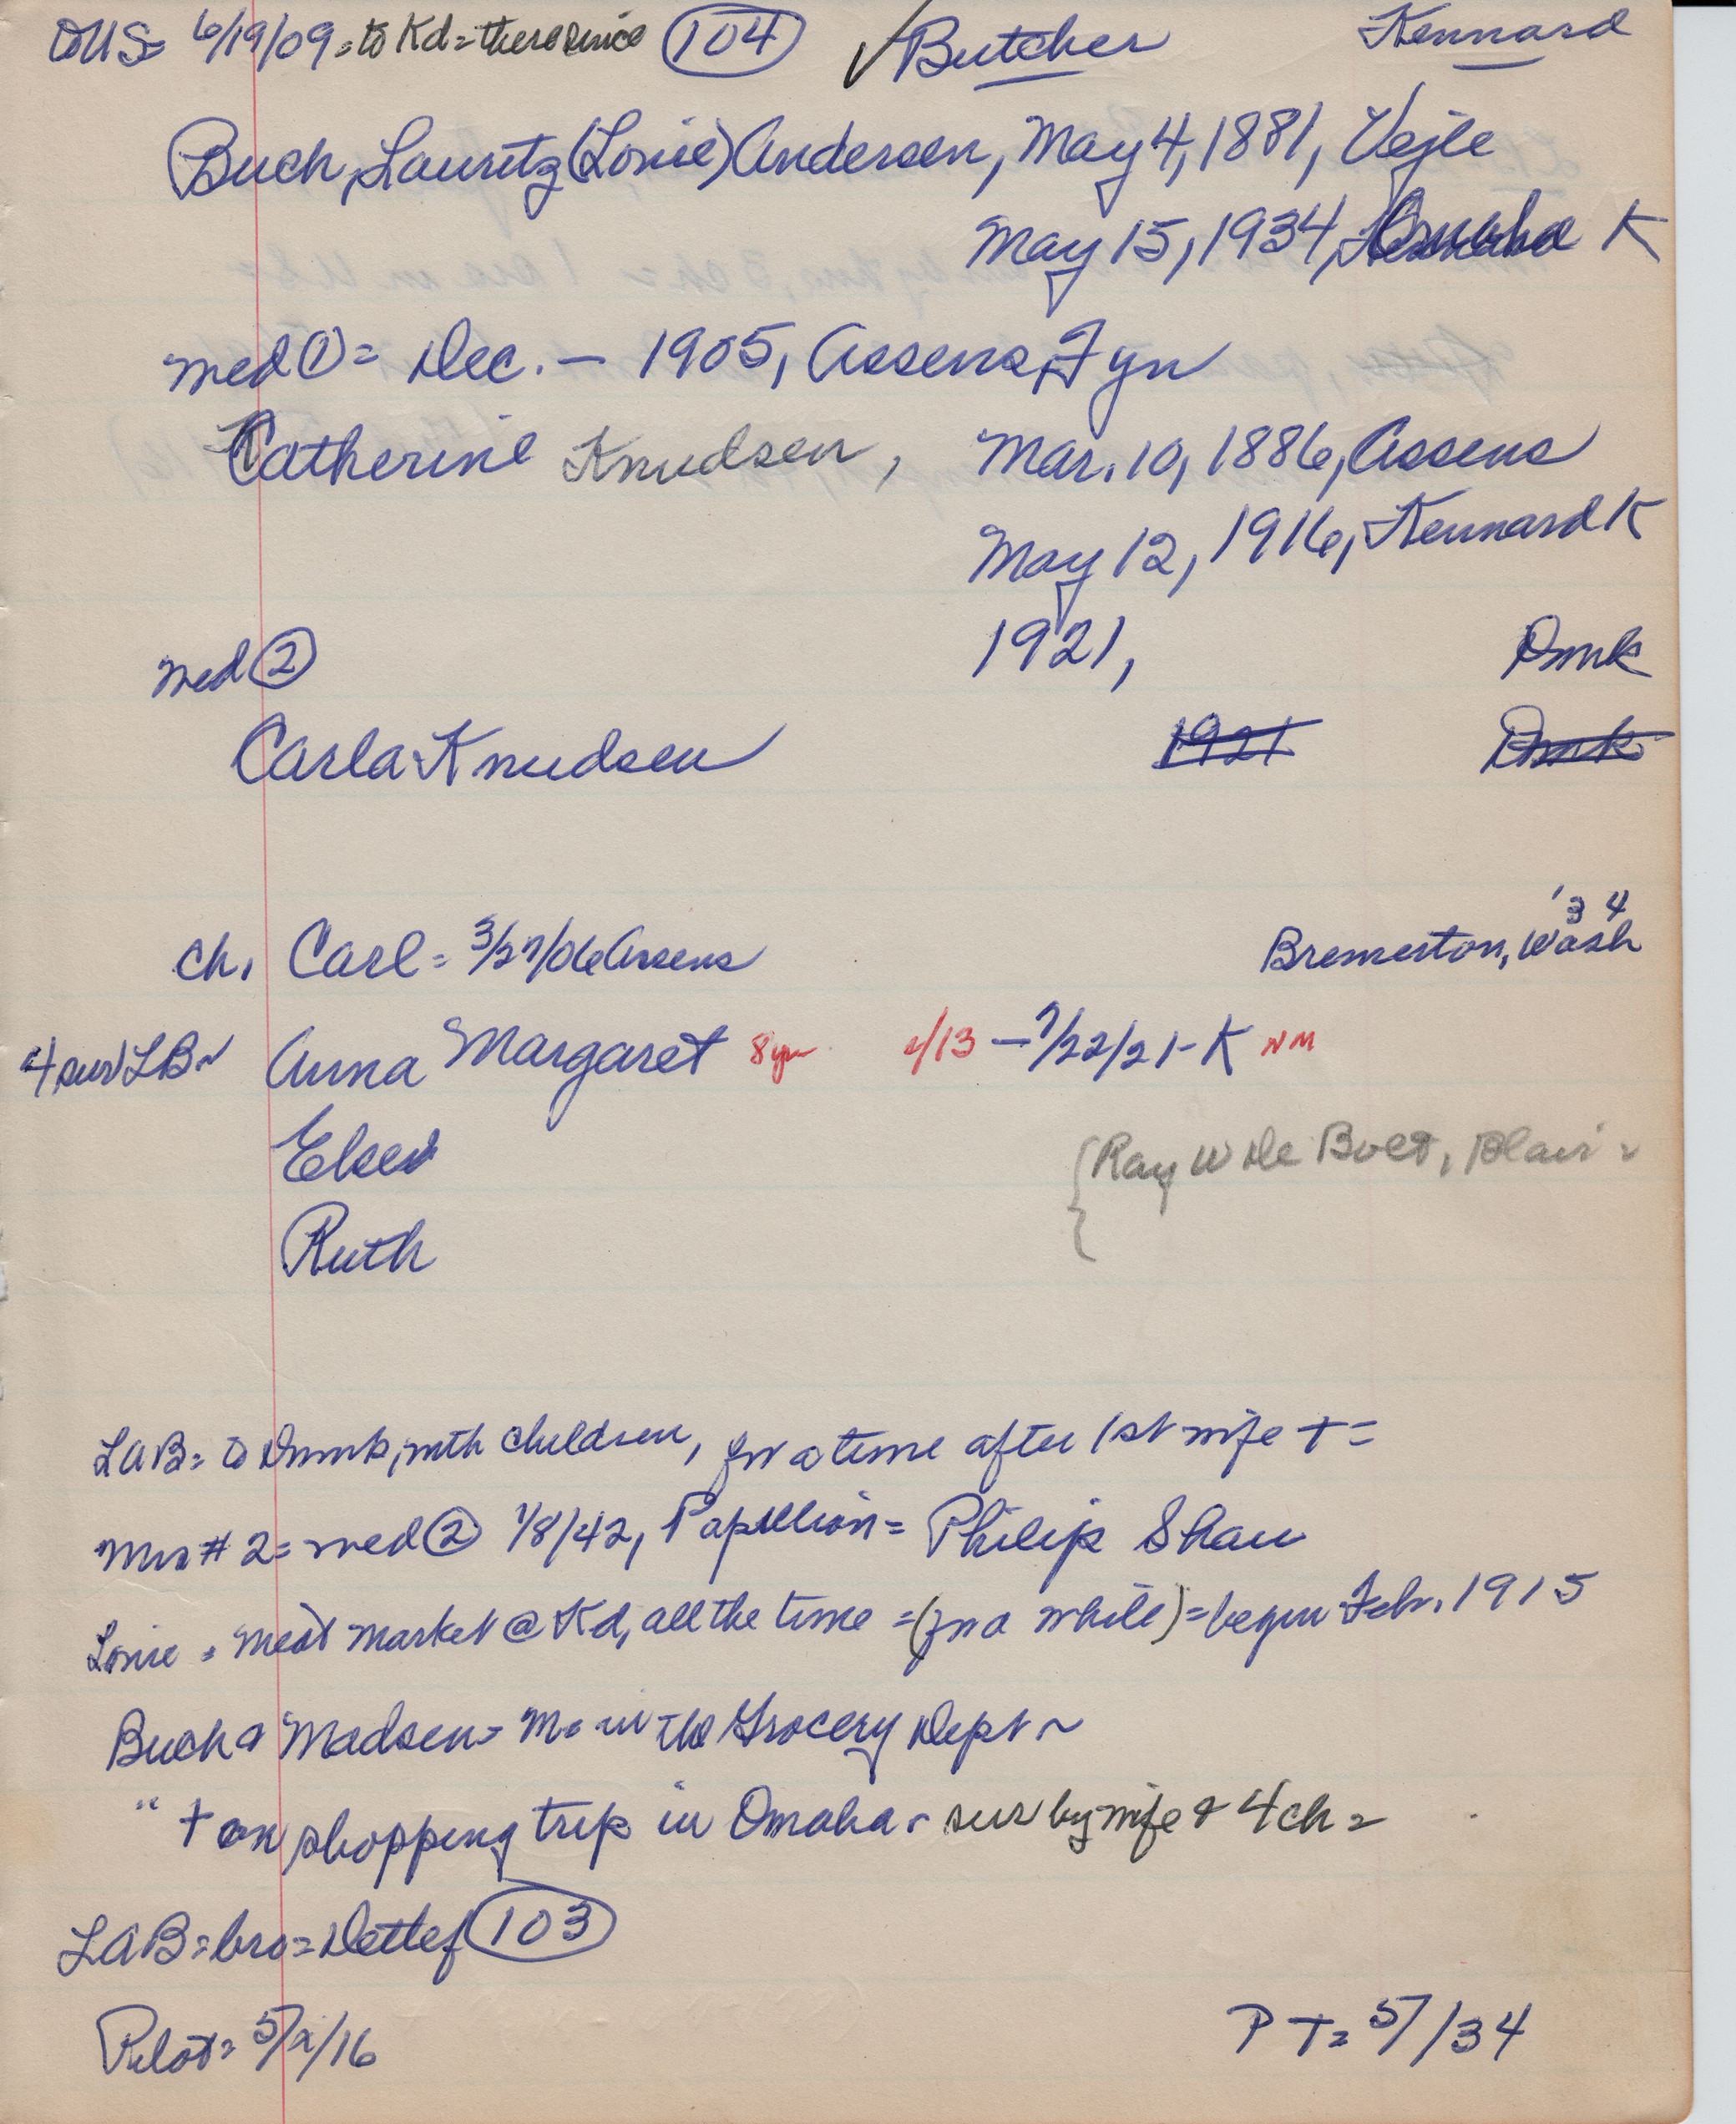 to US= 6/19/09 = to Kd = there since (104) ✓Butcher Kennard
Buch, Lauritz (Louie) Andersen, May 4, 1881, Vejle
May 15, 1934, Omaha K
med ① = Dec. — 1905, Assens, Fyn
Catherine Knudsen, Mar. 10, 1886, Assens
May 12, 1916, Kennard K
med ② 1921, Dmk
Carla Knudsen 1921 Dmk
'34
ch, Carl = 3/27/06 Assens Bremerton, Wash
4 surv LB~ Anna Margaret 8 yr /13 — 7/22/21 - K NM
Else
{Ray W De Bolt, Blair =
Ruth
LAB = to Dnmk, with children, for a time after 1st wife + =
Mrs # 2 = med ② 1/8/42, Papillion = Philip Shau
Louie = meat market @ Kd, all the time = (for a while) = begun Feb. 1915
Buch & Madsen = M = in the Grocery Dept ~
" + on shopping trip in Omaha - surv by wife & 4 ch =
LAB = bro = Detlef (103)
Pilot = 5/ /16 PT = 5/ /34